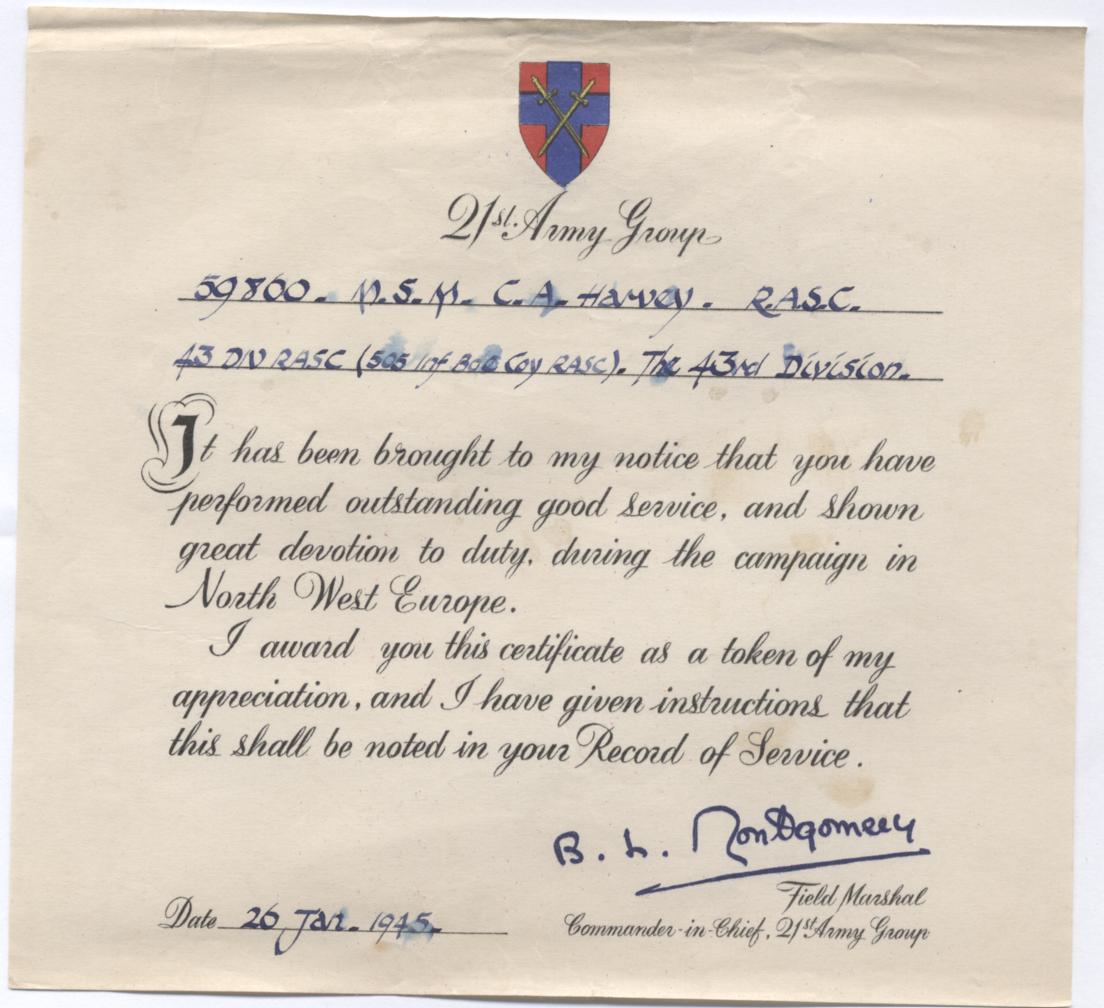 21st. Army Group
59860. M.S.M. C. A. Harvey. R.A.S.C.
43 DIV RASC (505 Inf Bde Coy RASC). The 43rd Division.
It has been brought to my notice that you have
performed outstanding good service, and shown
great devotion to duty, during the campaign in
North West Europe.
I award you this certificate as a token of my
appreciation, and I have given instructions that
this shall be noted in your Record of Service.
B. L. Montgomery
Field Marshal
Date 26 Jan. 1945.
Commander-in-Chief, 21st Army Group